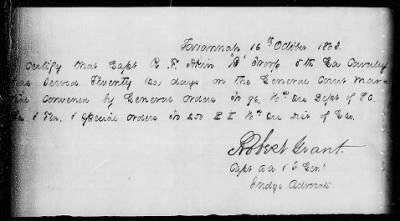 Savannah 16th October 1863.
Certify that Capt R. F. Akin "B" Troop 5th Ga Cavalry
has served Twenty (20) days on the General Court Mar-
tial convened by General Orders No 96. Hd Qrs Dept of S.C.
Ga & Fla. & Special Orders No 250 Hd Qrs Dist of Geo.
Robert Grant.
Capt & A. A. Genl
Judge Advocate